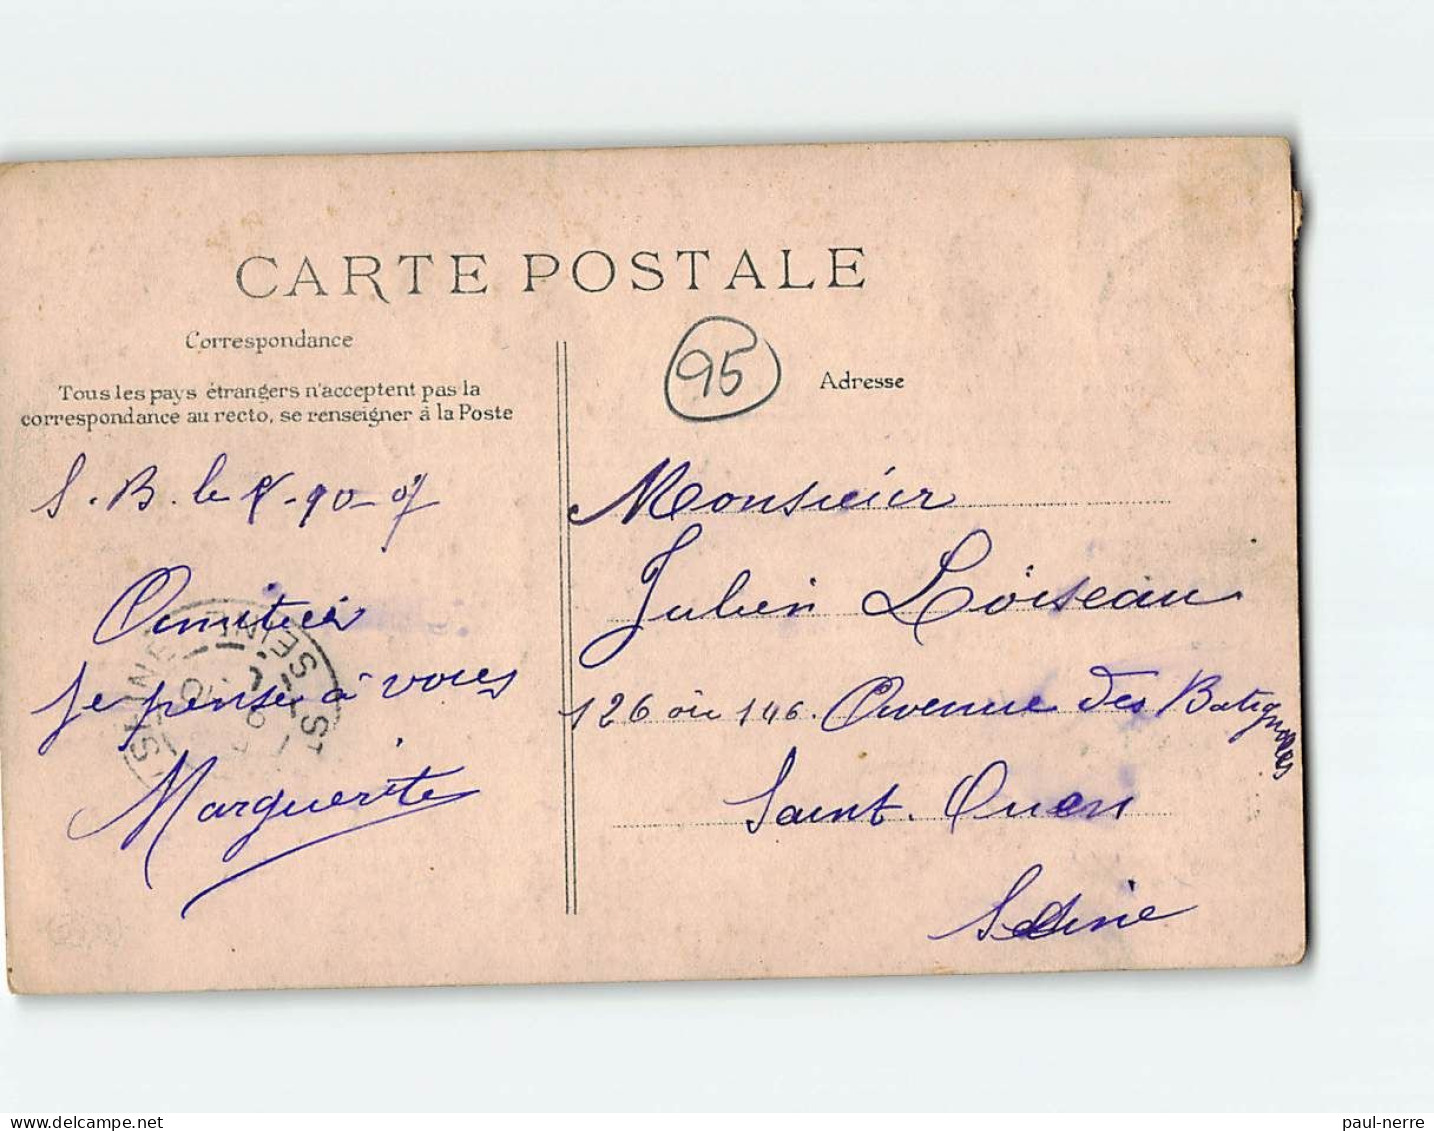 CARTE POSTALE
Correspondance
Tous les pays étrangers n'acceptent pas la
correspondance au recto, se renseigner à la Poste
S. B. le
Amitiés
je pense à vous
Marguerite
95
Adresse
Monsieur
Julien Loiseau
126 ou 146. Avenue des Batignolles
Saint. Ouen
Seine
SEINE
paul-nerre